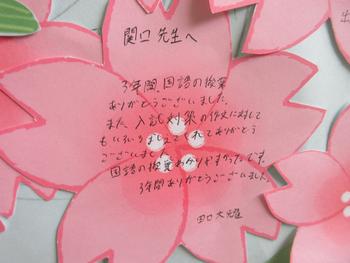 関口 先生へ
3年間 国語の授業
ありがとうございました。
また、入試対策の作文に対して
もいろいろ
くれてありがとう
ございました
国語の授業わかりやすかったです。
3年間ありがとうございました。
田口 大